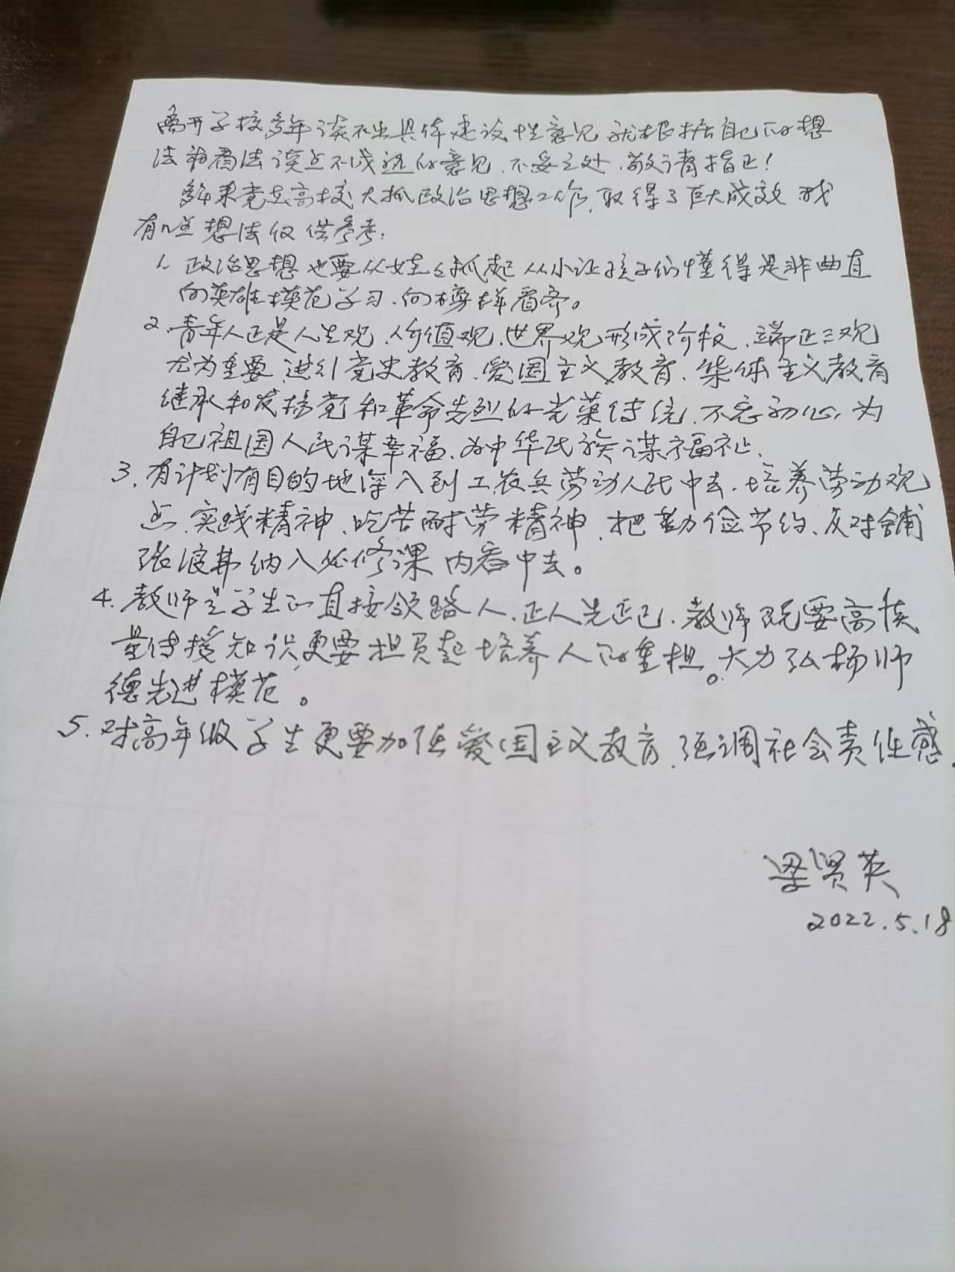 离开学校多年谈不出具体建设性意见 就根据自己的想
法和看法谈点不成述的意见 不妥之处 敬请指正!
多年来党在高校大抓政治思想工作,取得了巨大成效 我
有些想法仅供参考:
1、政治思想也要从娃娃抓起 从小让孩子们懂得是非曲直
向英雄模范学习、向榜样看齐。
2、青年人正是人生观、价值观、世界观形成阶段、端正三观
尤为重要、进行党史教育、爱国主义教育、集体主义教育
继承和发扬党和革命先烈的光荣传统、不忘初心、为
自己祖国人民谋幸福、为中华民族谋福祉、
3、有计划有目的地深入到工农兵劳动人民中去、培养劳动观
点、实践精神、吃苦耐劳精神、把勤俭节约、反对铺
张浪费纳入必修课内容中去。
4、教师是学生的直接领路人、正人先正己、教师既要高质
量传授知识,更要担负起培养人的重担。大力弘扬师
德先进模范。
5、对高年级学生更要加强爱国主义教育、强调社会责任感.
梁贤英
2022.5.18